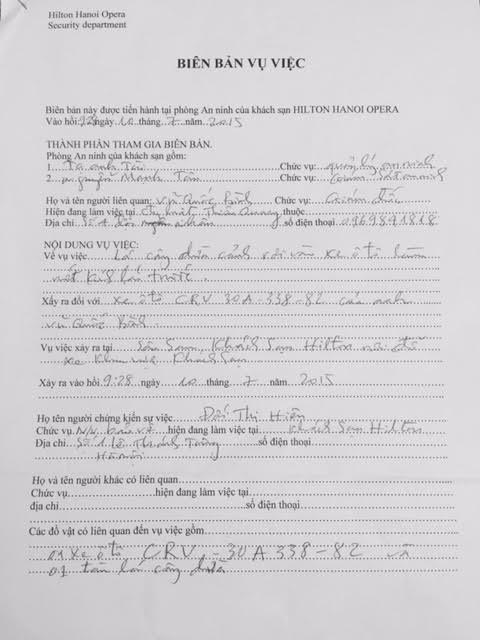 Hilton Hanoi Opera
Security department
BIÊN BẢN VỤ VIỆC
Biên bản này được tiến hành tại phòng An ninh của khách sạn HILTON HANOI OPERA
Vào hồi 9:28 ngày 10 tháng 7 năm 2015
THÀNH PHẦN THAM GIA BIÊN BẢN.
Phòng An ninh của khách sạn gồm:
1. Tạ Anh Tài Chức vụ: quản lý an ninh
2. Nguyễn Mạnh Tân Chức vụ: Giám sát an ninh
Họ và tên người liên quan: Vũ Quốc Bình Chức vụ: Giám đốc
Hiện đang làm việc tại Thiên Quang thuộc
Địa chỉ Số 1 số điện thoại 0969891818
NỘI DUNG VỤ VIỆC:
Về vụ việc Lá cây dừa cảnh rơi vào xe ô tô làm
nứt kính lái trước.
Xẩy ra đối với xe ô tô CRV 30A-338-82 của anh
Vũ Quốc Bình.
Vụ việc xảy ra tại Sân Sau, Khách Sạn Hilton nơi để
xe Khu vực Khách Sạn
Xảy ra vào hồi 9:28 ngày 10 tháng 7 năm 2015
Họ tên người chứng kiến sự việc Thị Hiền
Chức vụ N/v bảo vệ hiện đang làm việc tại Khách Sạn Hilton
Địa chỉ Số 1 Lê Thánh Tông số điện thoại
Hà Nội
Họ và tên người khác có liên quan
Chức vụ hiện đang làm việc tại
địa chỉ số điện thoại
Các đồ vật có liên quan đến vụ việc gồm
01 xe ô tô CRV, -30A 338-82 và
01 tàu lá cây dừa